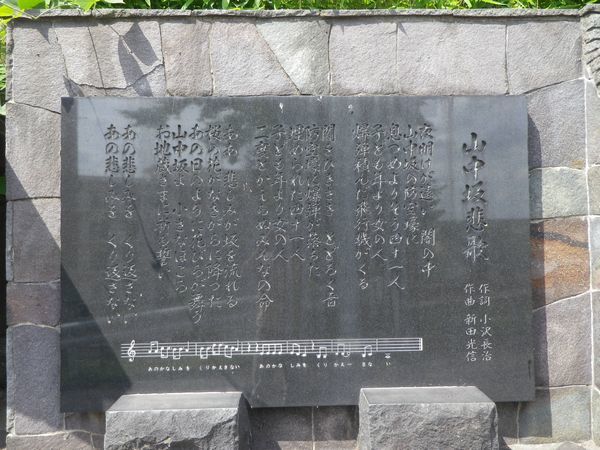 山中坂悲歌
作詞 小沢長治
作曲 新田光信
夜明けが遠い 闇の中
山中坂の防空壕に
息つめよりそう四十一人
子ども年より女の人
爆弾積んだ飛行機がくる
闇をひきさき とどろく音
防空壕に爆弾が落ちた
埋められた四十一人
子ども年より女の人
二度とかえらぬみんなの命
ああ 悲しみが坂を流れる
桜の花がなきがらに降った
あの日のように花びらが舞う
山中坂よ 小さなほこら
お地蔵さまに祈る誓い
あの悲しみを くり返さない
あの悲しみを くり返さない
あのかなしみを くりかえさない あのかなしみを くりかえーさない